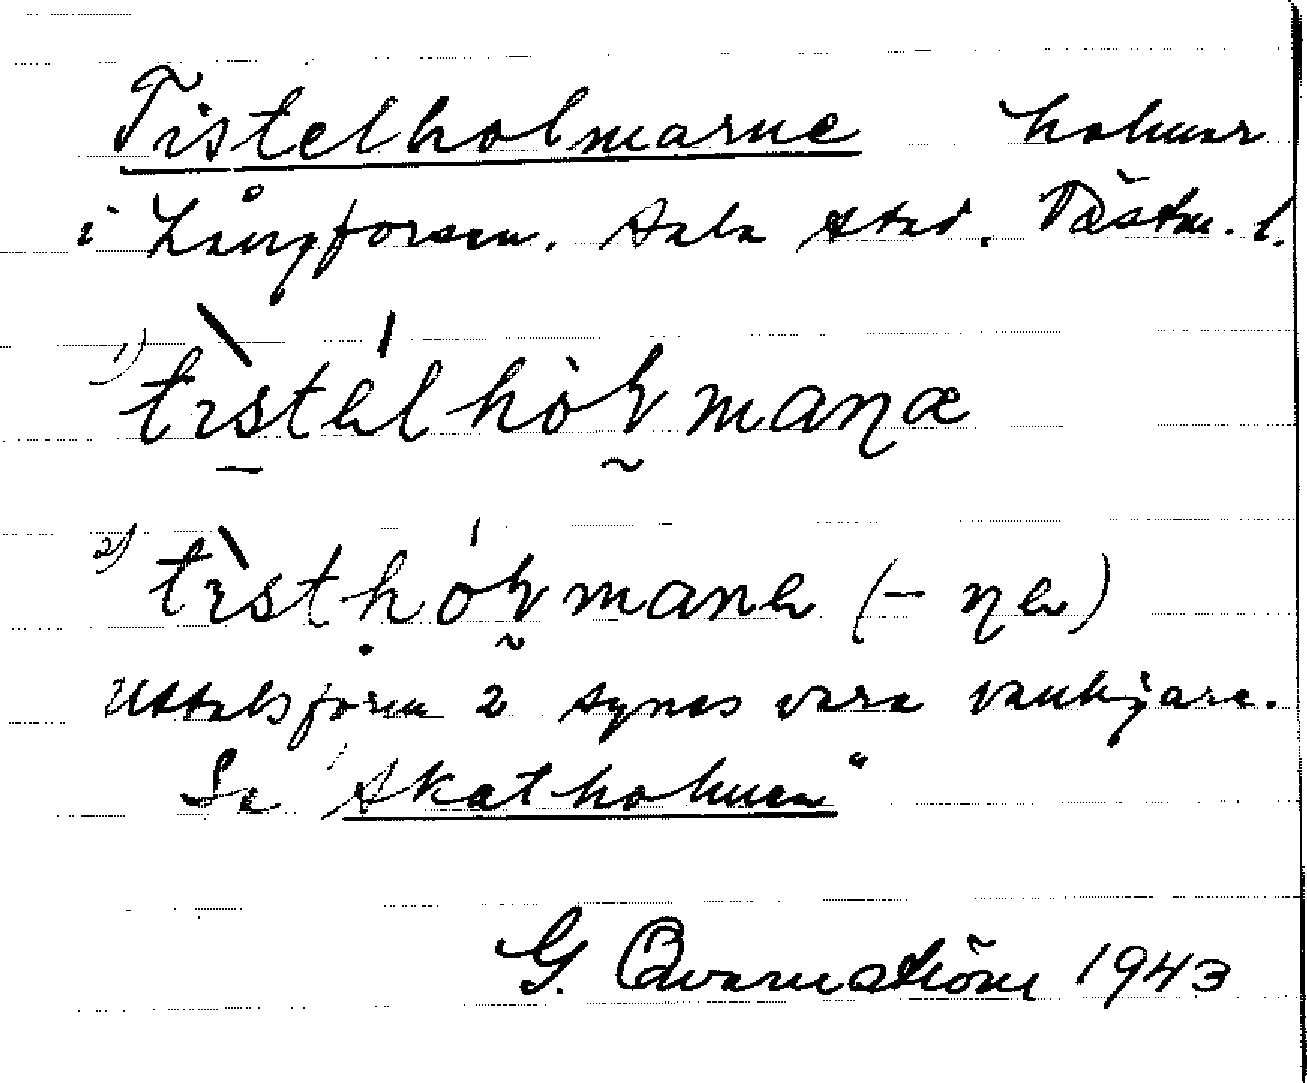 Tistelholmarne holmar
i Långforsen. Sala stad. Västm. l.
1) tistəlhòɫmaɳæ
2) tisthóɫmanə (- ɳə)
Uttalsform 2 synes vara vanligare.
Se "Skatholmen"
G. Qvarnström 1943